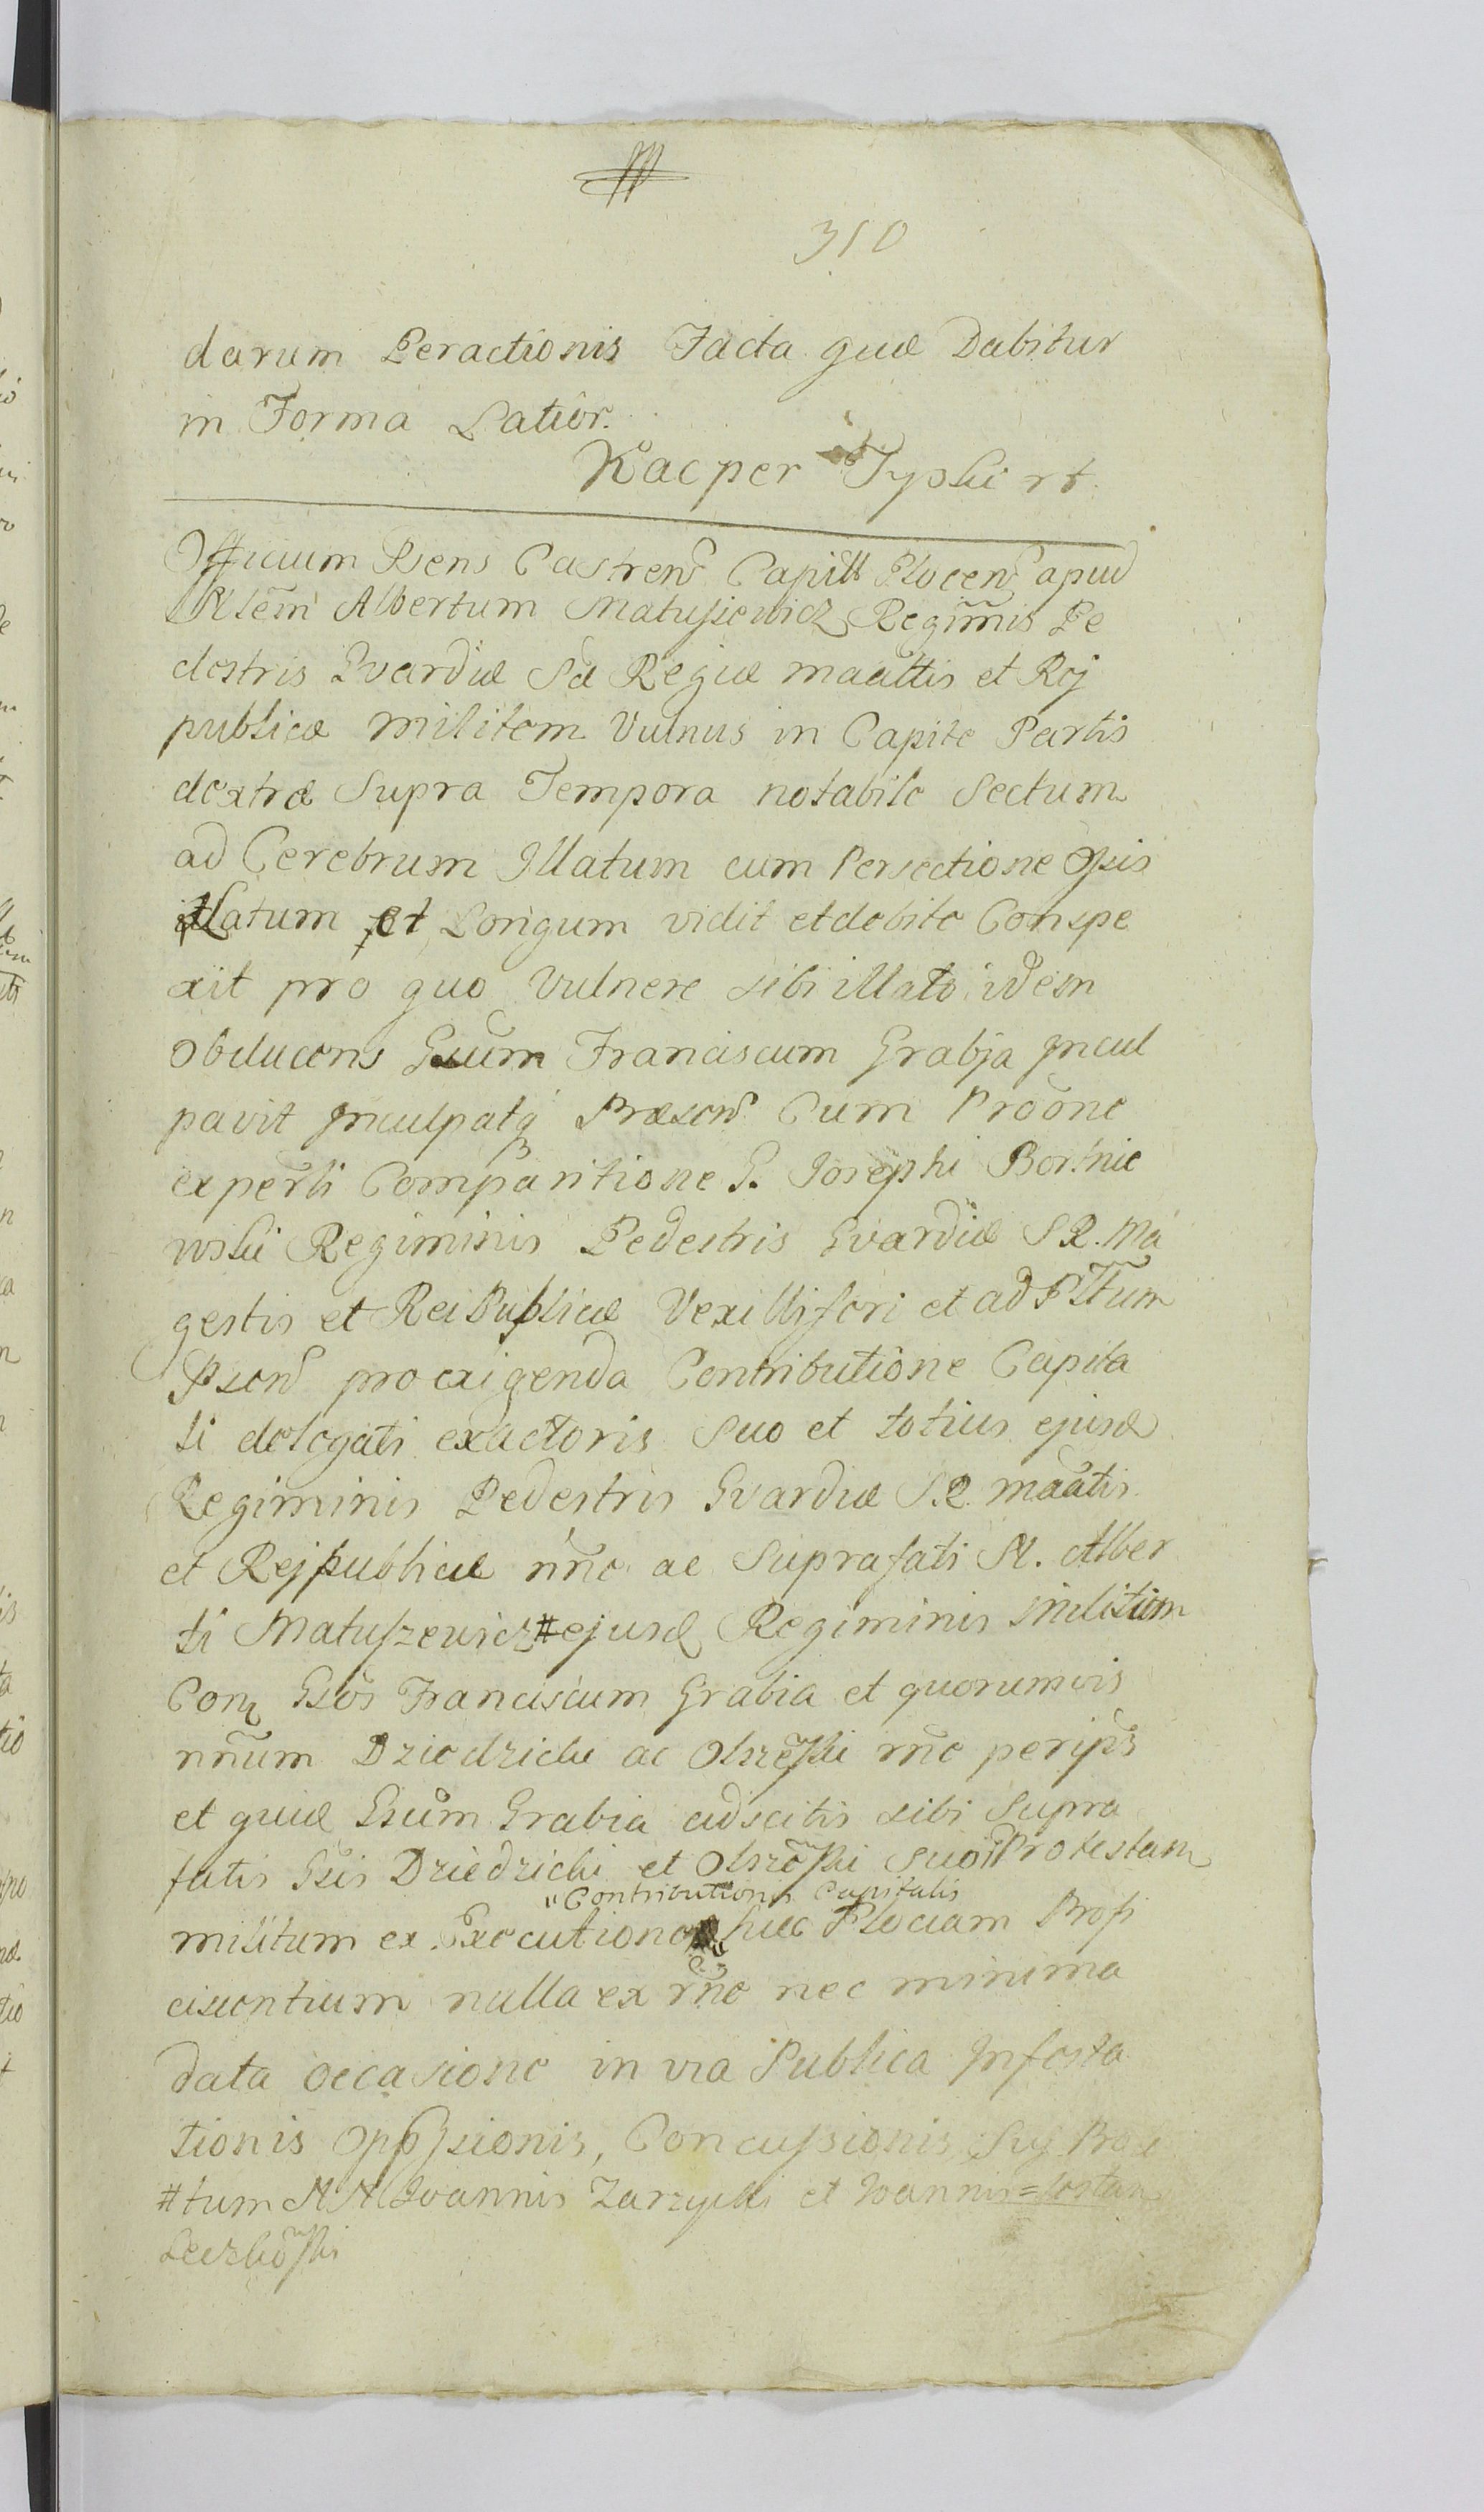 310
darum Peractionis Facta quæ Dabitur
in Forma Latior.
Kacper Typski
Officium Psens Castren Capitt Plocen apud
Albertum Matusiewicz Regim̃is Pe
destris Gvardiæ Sæ Regiæ maãttis et Rej
publicæ militem Vulnus in Capite Partis
dextræ Supra Tempora notabile Sectum
ad Cerebrum Illatum cum Persectione Ossis
Latum et Longum vidit et debite Conspe
xit pro quo Vulnere sibi illato idem
Obducens Gsum Franciscum Grabja Incul
pavit Inculpatq Præsen Cum Prõne
experti Comparitione G. Josephi Bortnie
wski Regiminis Pedestris Gvardiæ S R. Ma
gestis et Rei Publicæ Vexilliferi et ad Pltum
Psen pro exigenda Contributione Capita
li delegati exactoris Suo et totius ejusd
Regiminis Pedestris Gvardiæ S.R. maãtis
et Rejpublicæ nñe ac Suprafati N. Alber
ti Matuszewicz # ejusd Regiminis militum
Con Gsos Franciscum Grabia et quorumvis
nñum Dziedzicki ac Olszẽski rñe per ips
et quia Gsum Grabia adscitis sibi Supra
fatis Gsis Dziedzicki et Olszẽski suor Protestan
"Contributionis Capitalis
militum ex Executione huc Plociam Profi
ciscentium nulla ex rñe nec minima
data occasione in via Publica Infesta
tionis Oppssionis, Concussionis,
# tum NN Joannis Zarzycki et Joannis